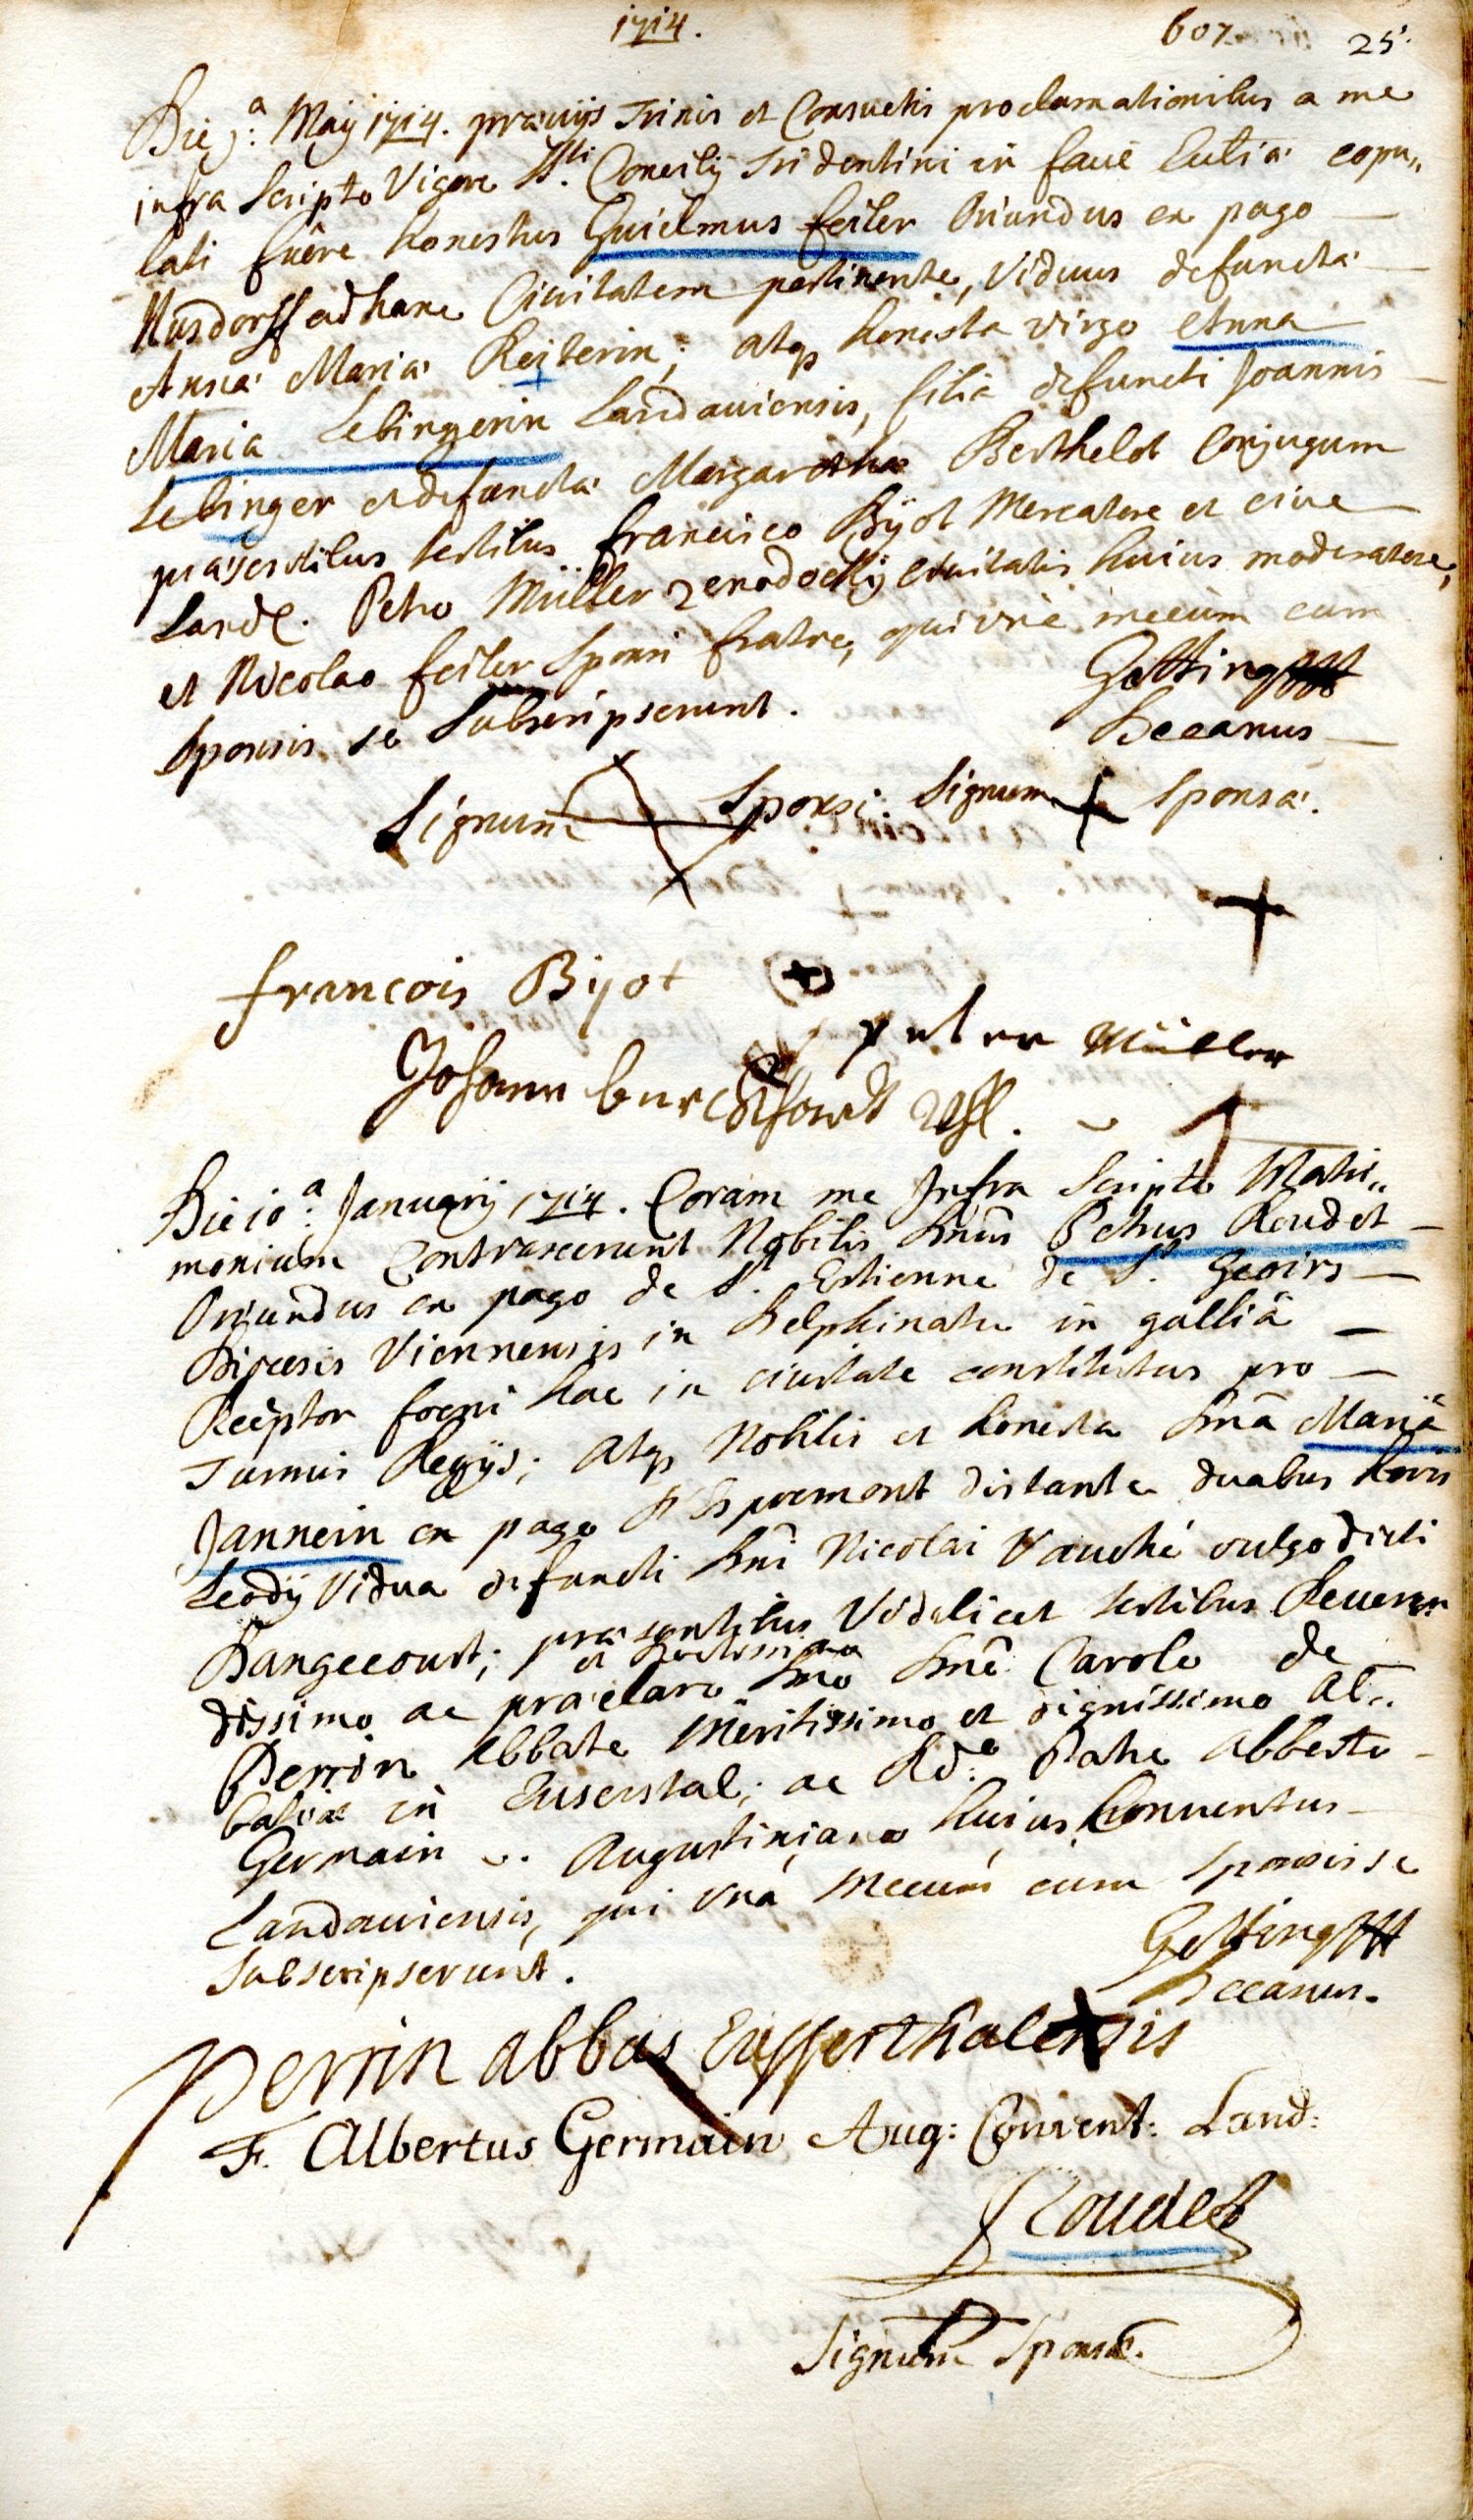 1714.
607 25.
Die j.a Maÿ 1714. præuijs Trinis et Consuetis proclamationibus a me
infra Scripto Vigore Ssti Concilÿ Tridentini in facie Eccliæ copu„
lati fuêre honestus Guielmus feiler Oriundus ex pago
Nusdorff ad hanc Ciuitatem pertinente, Viduus defunctæ
Annæ Mariæ Reiterin; atq honesta virgo Anna
Maria Lebingerin Landauiensis, filia defuncti Joannis
Lebinger et defunctæ Margarethæ Berthelot Conjugum
præsentibus testibus francisco Bÿot Mercatore et ciue
Land. Petro Müller Xenodochÿ Ciuitatis huius moderatore,
et Nicolao feiler Sponsi fratre, qui unà mecum cum
Sponsis se Subscripserunt.
Getting
Decanus
Signum Sponsi Signum + Sponsæ.
+
francois Bijot
peter Müller
Johann
Die 10.a Januarÿ 1714. Coram me Infra Scripto Matri„
monium Contraxerunt Nobilis Dnûs Petrus Roudet
Oriundus ex pago de St. Estienne de St. Geoirs
Diœcesis Viennensis in Delphinatu in galliâ
Receptor foeni hac in ciuitate constitutus pro
Turmis Regijs; Atq Nobilis et honesta Dnâ Mariâ
Jannein ex pago d'Espremont distante duabus horis
Leodÿ Vidua defuncti Dnî Nicolai Vauthé vulgo dicti
Dangecourt; præsentibus Videlicet testibus Reueren
et Doctissimo
dissimo ac præclaro Dno Dnê Carolo de
Perrin Abbate Meritissimo et dignissimo Ab„
batiæ in Eusserstal; ac Rdo. Patre Abberto
Germain Augustiniano huius Conuentus
Landauiensis, qui unà Mecum cum Sponsis se
Subscripserunt.
Getting
Decanus.
Perrin abbas Eusserthalensis
F. Albertus Germain Aug: Convent: Land:
Roudet
Signum Sponsæ.